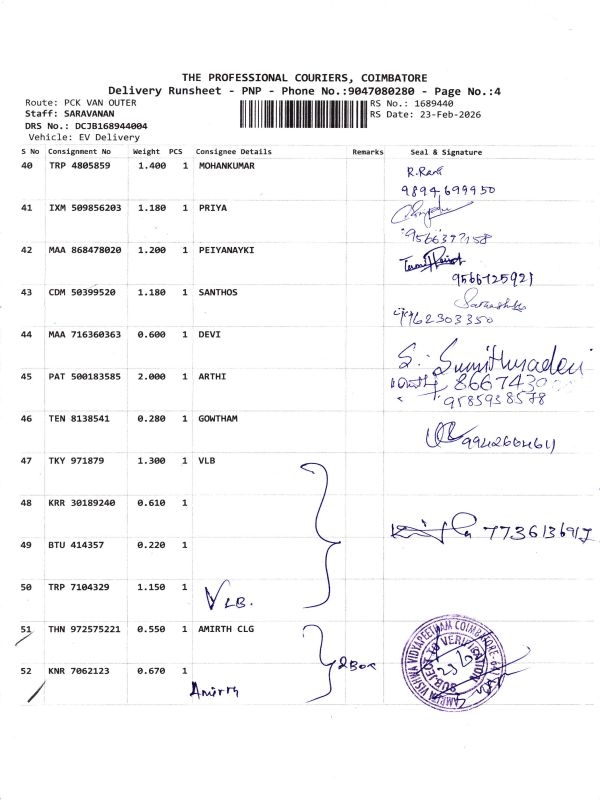 THE PROFESSIONAL COURIERS, COIMBATORE
Delivery Runsheet - PNP - Phone No.:9047080280 - Page No.:4
Route: PCK VAN OUTER
RS No.: 1689440
Staff: SARAVANAN
RS Date: 23-Feb-2026
DRS No.: DCJB168944004
Vehicle: EV Delivery
S No Consignment No Weight PCS Consignee Details Remarks Seal & Signature
40 TRP 4805859 1.400 1 MOHANKUMAR
R.Rani
9894699950
41 IXM 509856203 1.180 1 PRIYA
9566377158
42 MAA 868478020 1.200 1 PEIYANAYKI
9566725921
43 CDM 50399520 1.180 1 SANTHOS
9962303350
44 MAA 716360363 0.600 1 DEVI
S. Sumithradevi
45 PAT 500183585 2.000 1 ARTHI
9585938578
46 TEN 8138541 0.280 1 GOWTHAM
9942664611
47 TKY 971879 1.300 1 VLB
48 KRR 30189240 0.610 1
49 BTU 414357 0.220 1
50 TRP 7104329 1.150 1
VLB.
51 THN 972575221 0.550 1 AMIRTH CLG
2 Box
52 KNR 7062123 0.670 1
Amirth
AMRITA VISHWA VIDYAPEETHAM COIMBATORE
SUBJECT TO VERIFICATION